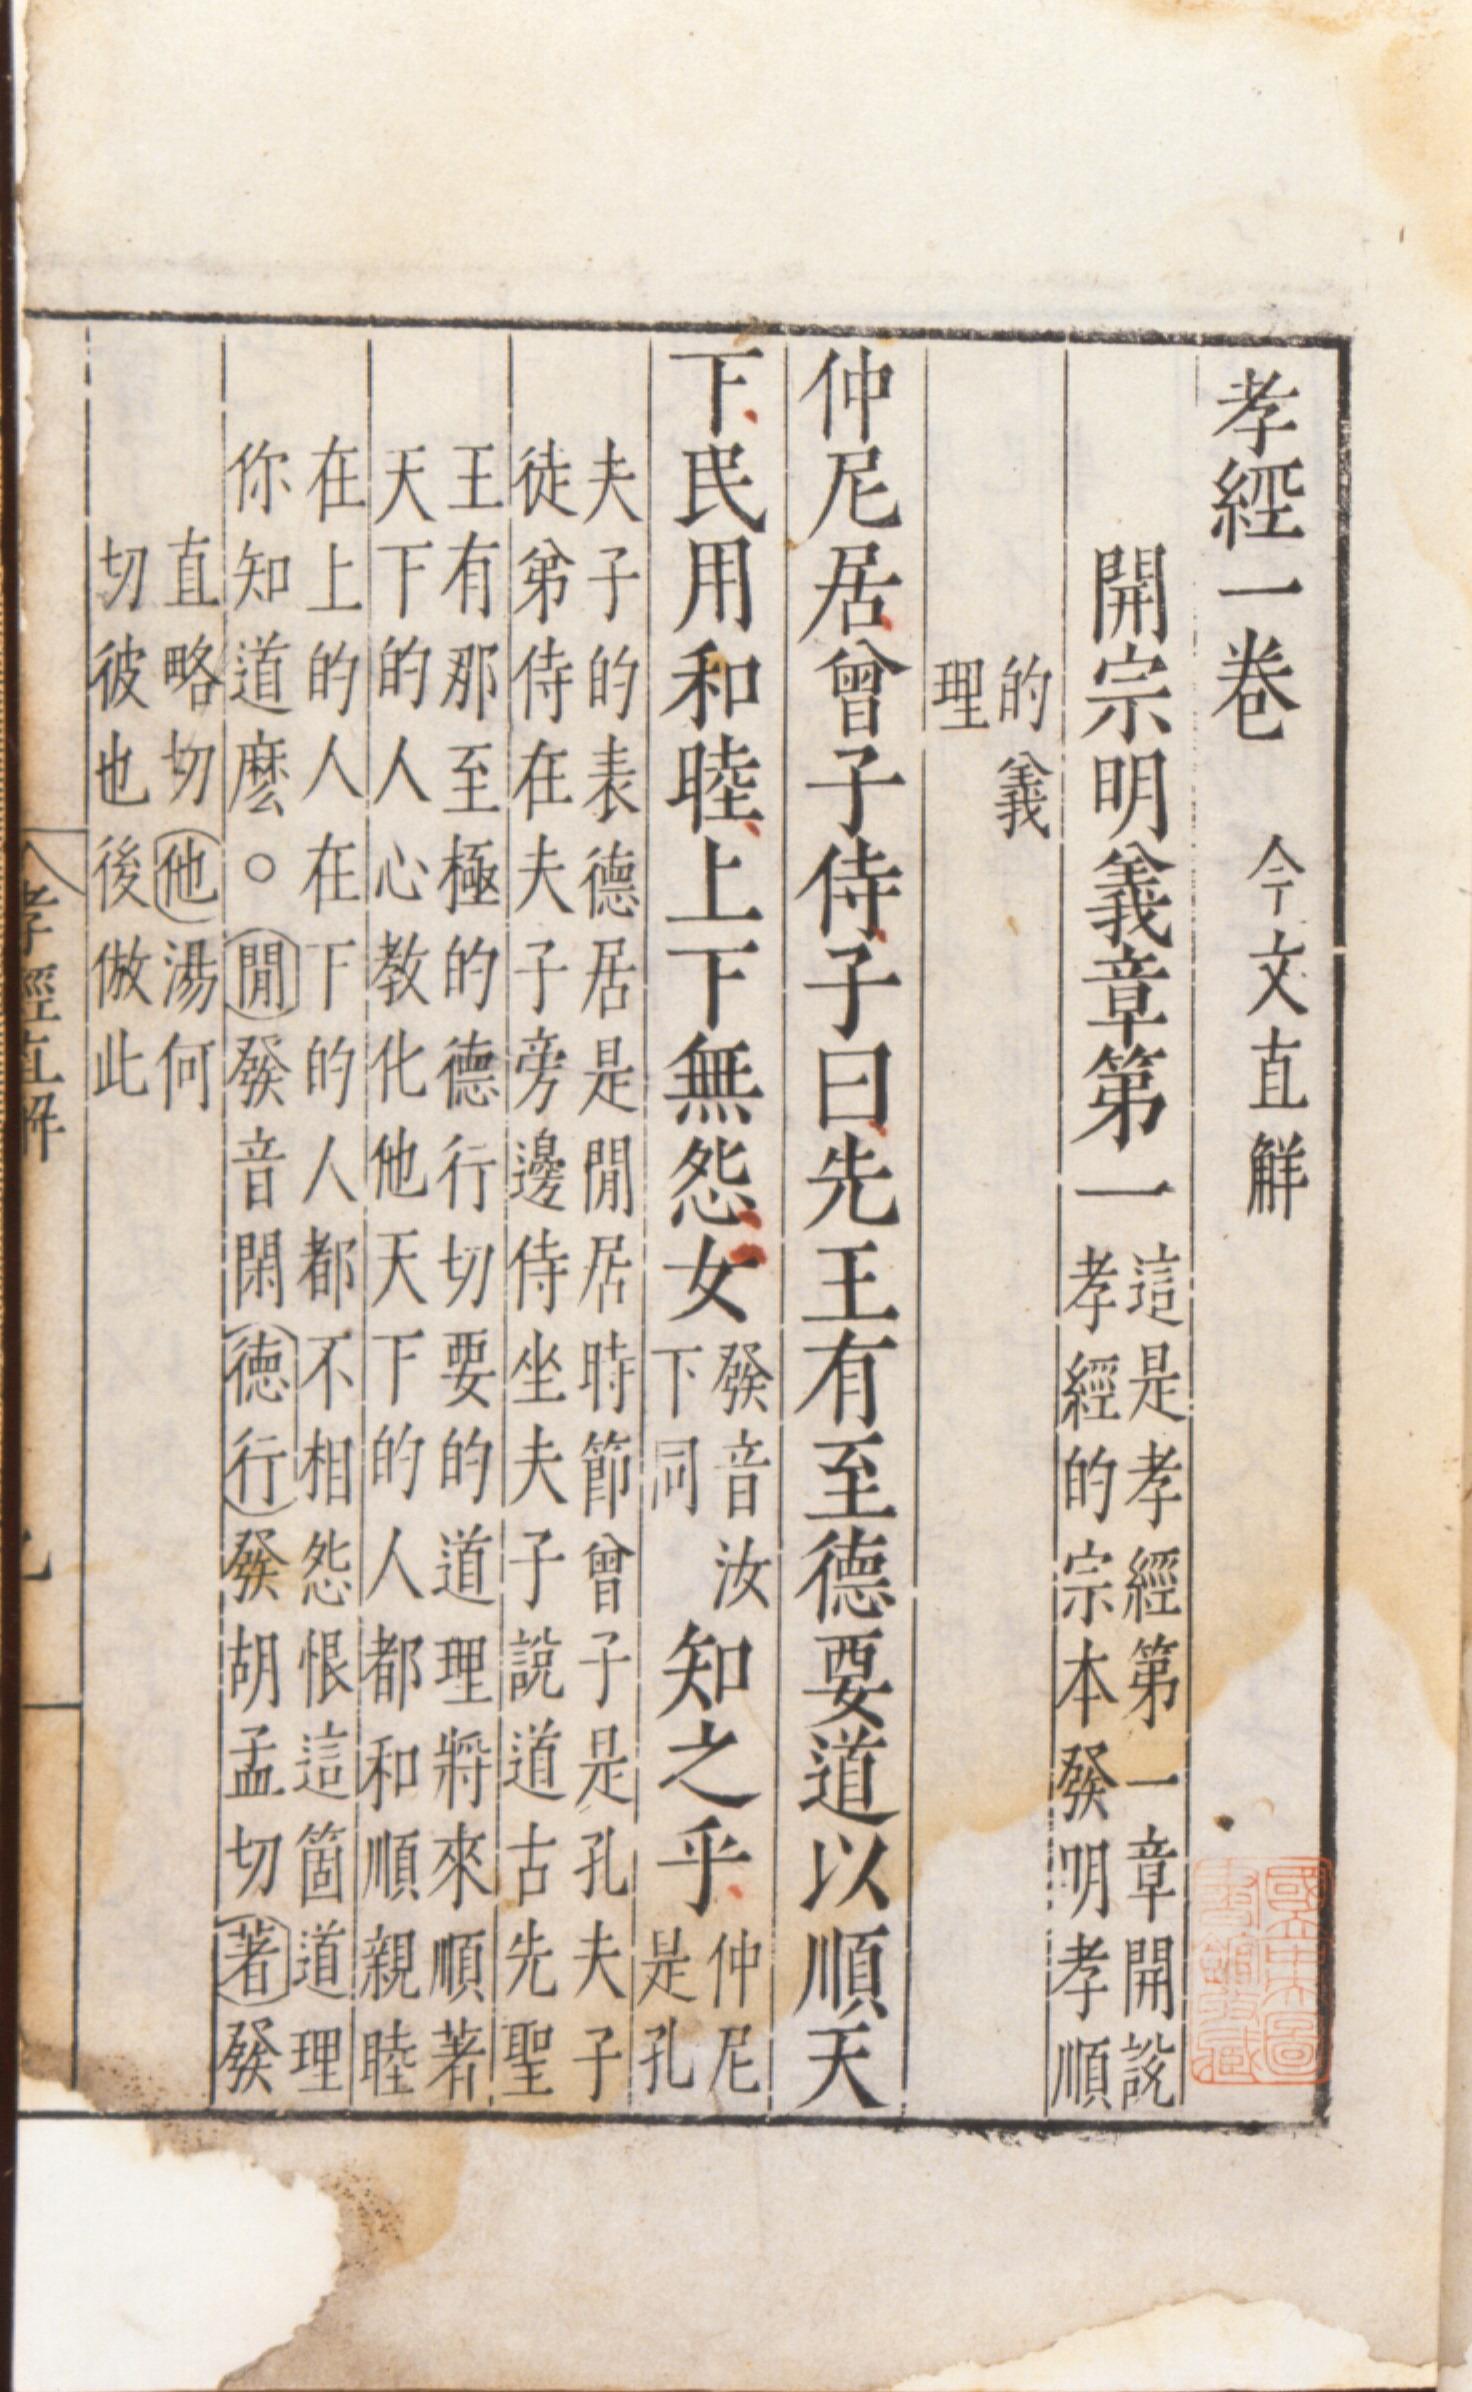 孝經一卷　今文直解
開宗明義章第一
這是孝經第一章開說
孝經的宗本發明孝順
的義
理
仲尼居曾子侍子曰先王有至德要道以順天
下民用和睦上下無怨女
發音汝
下同
知之乎
仲尼
是孔
夫子的表德居是閒居時節曾子是孔夫子
徒弟侍在夫子旁邊侍坐夫子說道古先聖
王有那至極的德行切要的道理將來順著
天下的人心教化他天下的人都和順親睦
在上的人在下的人都不相怨恨這箇道理
你知道麽○閒發音閑德行發胡孟切著發
直略切他湯何
切彼也後倣此
孝經直解
國立中央圖
書館收藏